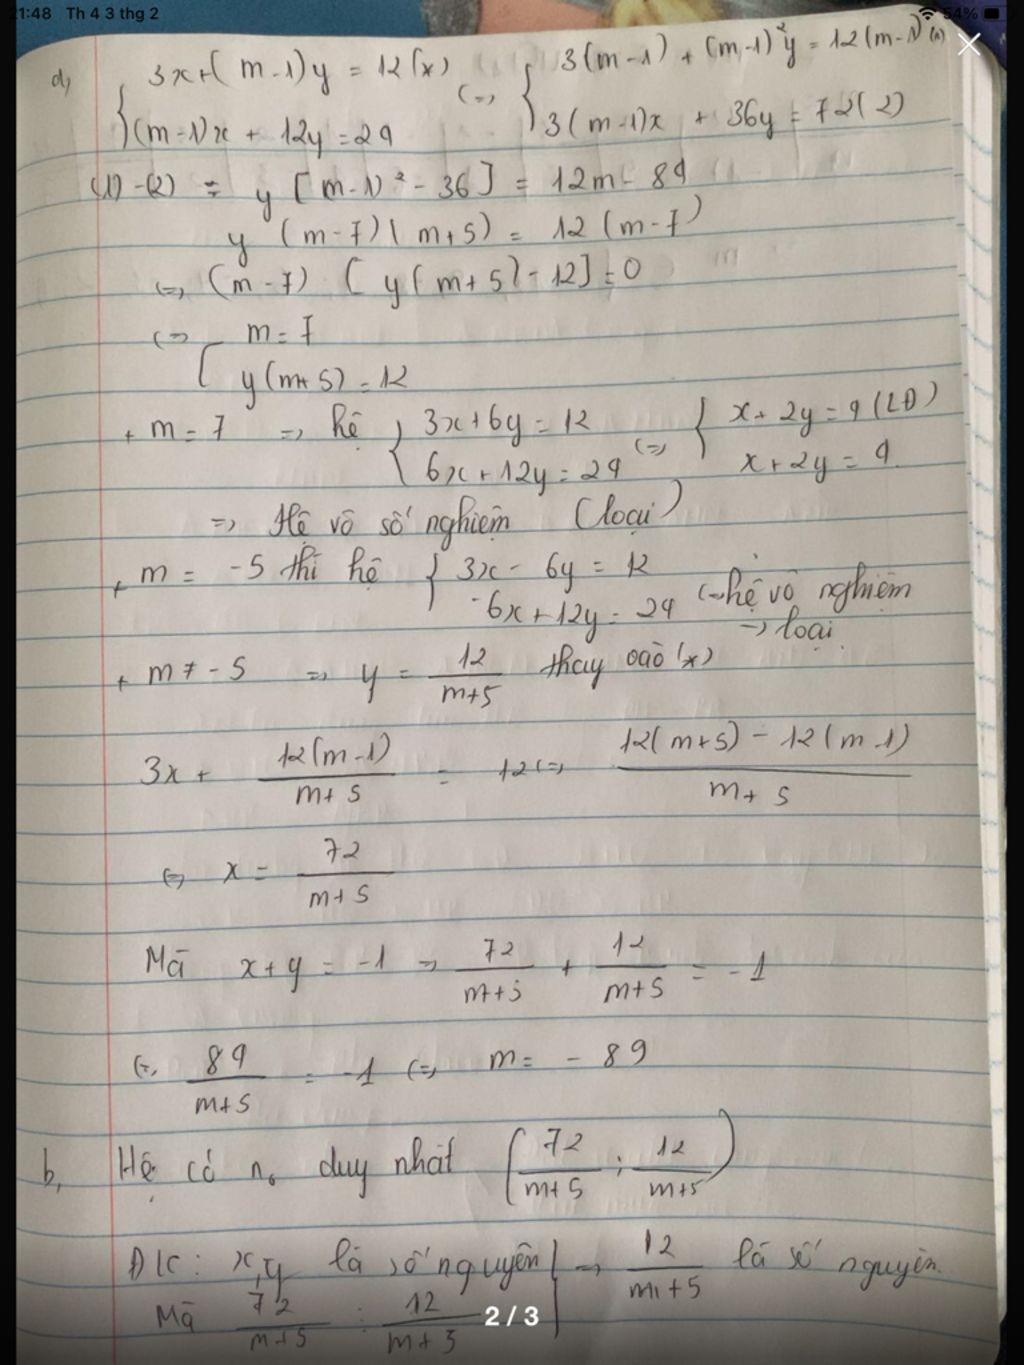 21:48 Th 4 3 thg 2 54%
a, { 3x+(m-1)y = 12(x) (=) { 3(m-1) + (m-1)²y = 12(m-1)
(m-1)x + 12y = 24 3(m-1)x + 36y = 72(2)
(1)-(2) = y [m-1)² - 36] = 12m - 84
y (m-7)(m+5) = 12(m-7)
(=) (m-7) [y(m+5)-12]=0
(=) [ m = 7
y(m+5) = 12
+ m = 7 => hệ { 3x+6y = 12 (=) { x+2y = 4 (LĐ)
6x+12y = 24 x+2y = 4
=> Hệ vô số nghiệm (loại)
+ m = -5 thì hệ { 3x - 6y = 12
-6x+12y = 24 (=) hệ vô nghiệm
-> loại
+ m ≠ -5 => y = 12/m+5 thay vào (x)
3x + 12(m-1)/m+5 = 12 (=) 12(m+5) - 12(m-1)/m+5
(=) x = 72/m+5
Mà x+y = -1 => 72/m+5 + 12/m+5 = -1
(=) 84/m+5 = -1 (=) m = -89
b, Hệ có n₀ duy nhất (72/m+5 ; 12/m+5)
ĐK: x,y là số nguyên => 12/m+5 là số nguyên
Mà 72/m+5 : 12/m+5
2 / 3